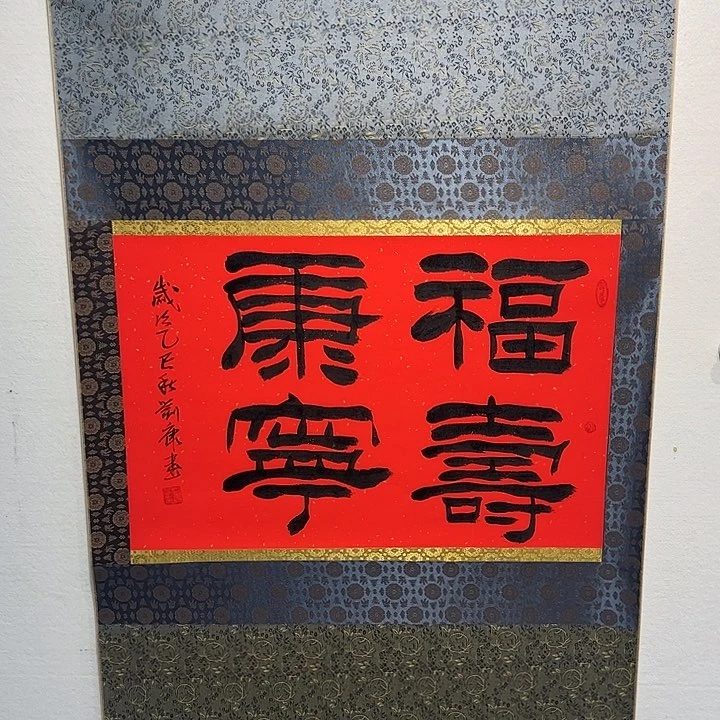 福壽
康寧
歲次乙巳秋劉康書